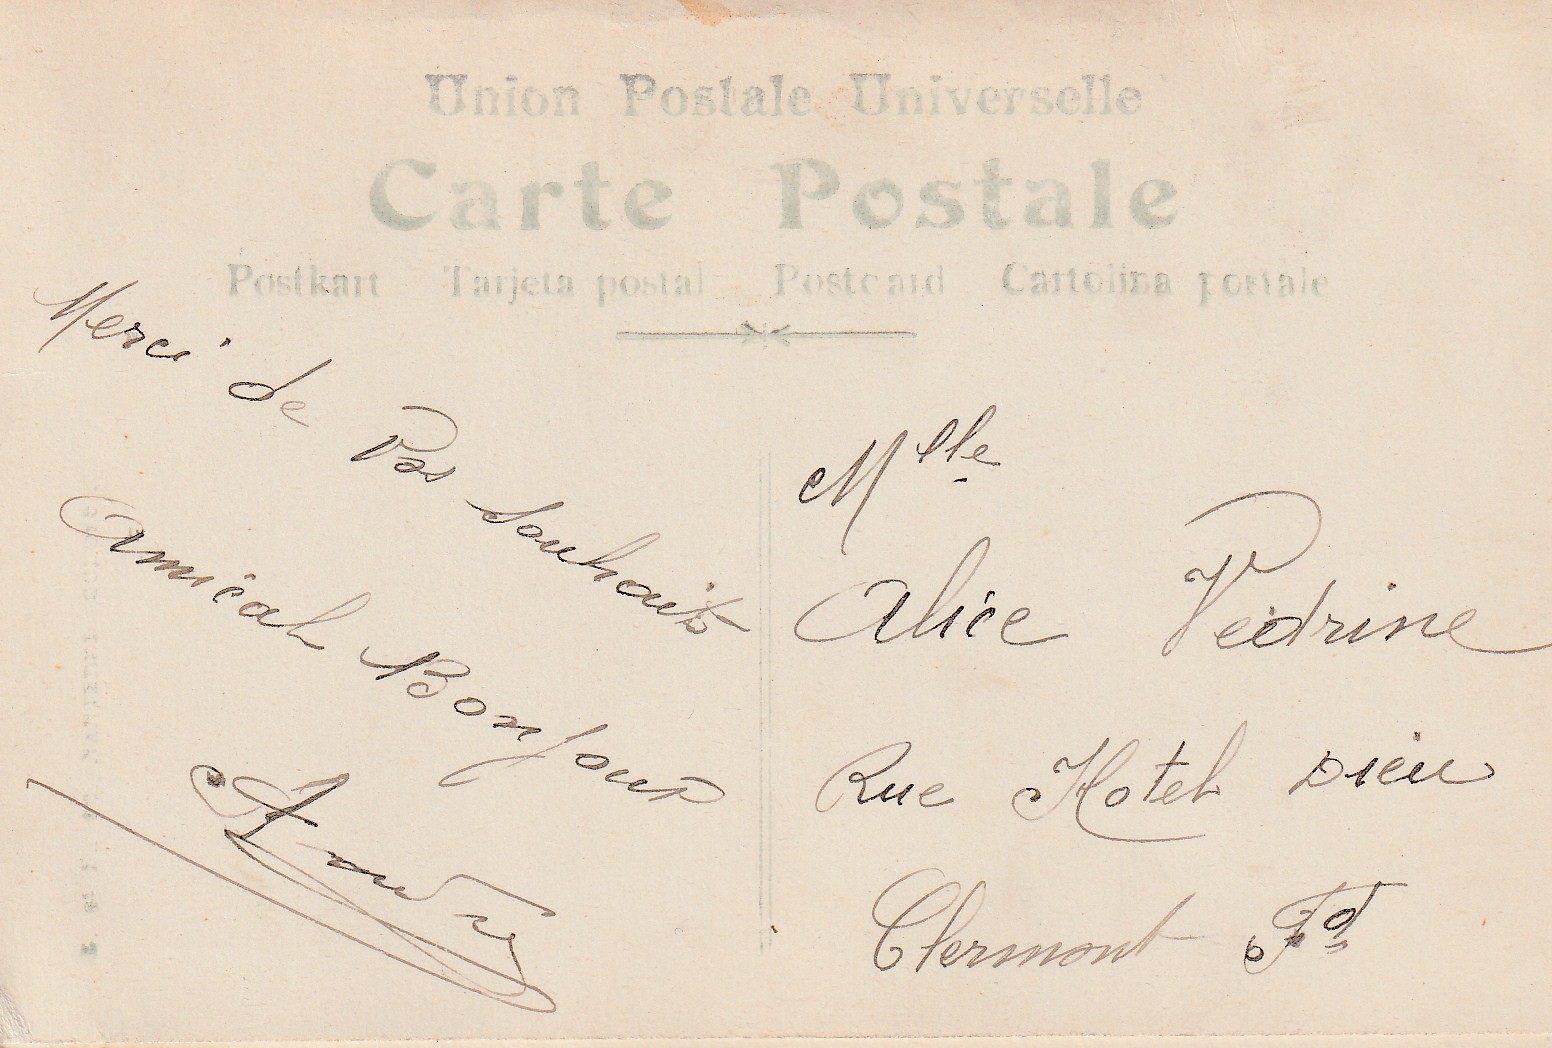 Union Postale Universelle
Carte Postale
Postkart Tarjeta postal Postcard Cartolina postale
Merci de Vos Souhaits
Amical Bonjour
Mlle
Alice Vedrine
Rue Hotel Dieu
Clermont Fd